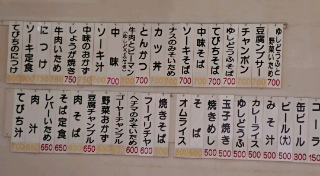 ゆしどうふと
野菜いため
700
豆腐ンブサー
700
チャンポン
700
ゆしどうふそば
700
てびちそば
700
中味そば
700
ソーキそば
700
ナスのみそいため
700
カツ丼
700
とんかつ
700
牛肉とピーマン
700
味
ソーキ汁
700
中味のおかず
しょうが焼き
牛肉いため
700
につけ
750
ソーキ定食
てびちのにつけ
コーラ
缶ビール
300
ビール(大)
みそ汁
500
カレーライス
500
ゆしどうふ
500
玉子焼き
500
焼きめし
500
そば
500
オムライス
焼きそば
フーイリチャ
600
ヘチマのみそいため
600
ゴーヤーチャンプル
野菜おかず
豆腐チャンプル
肉そば
そば定食
650
レバーいため
650
肉汁
てびち汁